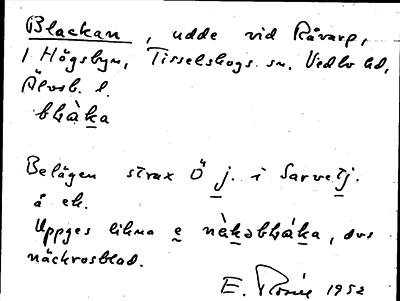 Blackan, udde vid Råvarp,
i Högsbyn, Tisselskogs sn. Vedbo hd,
Älvsb. l.
bláka
Belägen strax Ö j. i
å ek.
Uppges likna e nàkəbláka, dvs
näckrosblad.
E. 1952